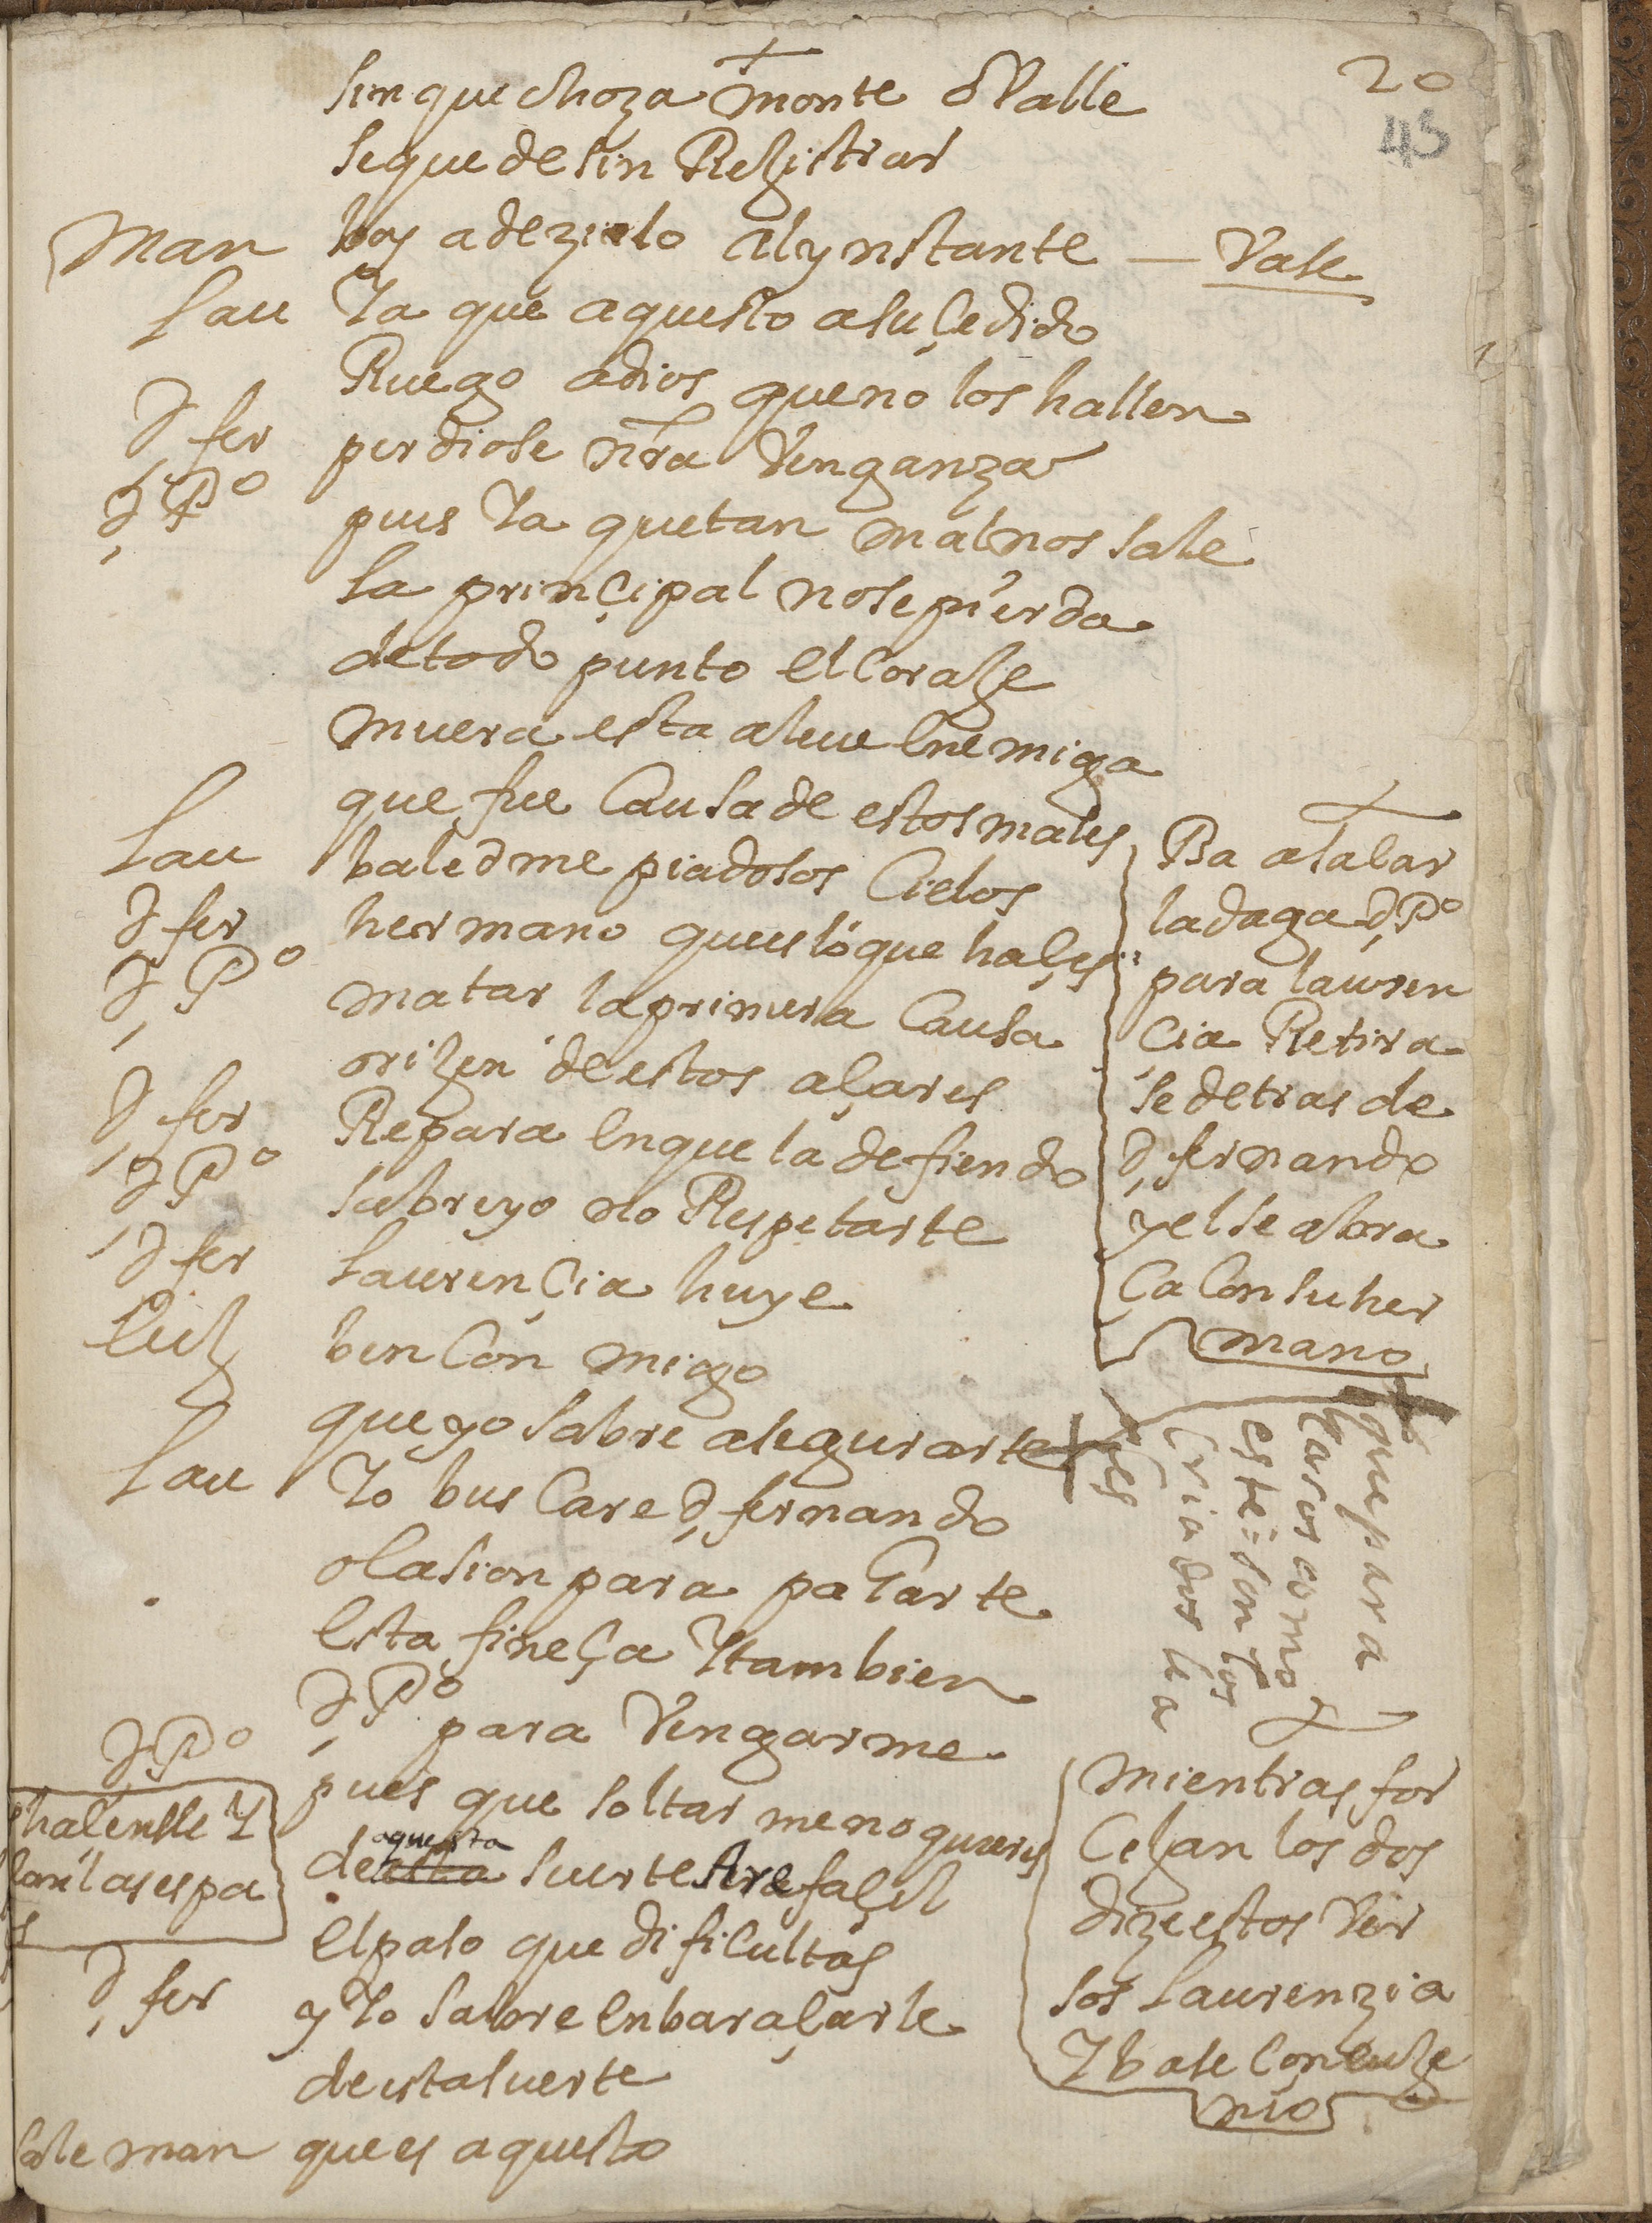 20
45
sin que choza monte o Valle
se quede sin Rexistrar
Man boy a dezirlo al ynstante — Vase
Lau Ya que aquesto a suçedido
Ruego a dios que no los hallen
D fer perdiose nra Venganza
D Po pues Ya que tan mal nos sale
la prinçipal no se pierda
de todo punto el Coraxe
muera esta aleue Enemiga
que fue Causa de estos males
Lau baledme piadosos Cielos
D fer hermano que es lo que haçes
D Po matar la primera Causa
orixen de estos açares
D fer Repara en que la defiendo
D Po sabre yo no Respetarte
D fer Laurençia huye
Eux ben Con migo
que yo sabre asegurarte
Lau Yo buscare D fernando
ocasion para pagarte
esta fineça Y tambien
D Po para Vengarme
D Po pues que soltar me no quieres
de esta aquesta suerte sera façil
el paso que dificultas
D fer y Yo sabre enbaraçarle
de esta suerte
sale man que es aquesto
Ba a sacar
la daga D Po
para lauren
cia Retira
se detras de
D fernando
y el se abra
ça Con su her
mano
que para
casos como
este son los
criados lea
les
mientras for
cejan los dos
dize estos Ver
sos Laurenzia
Y base Con euxe
nio
hacenlle Y
las espa